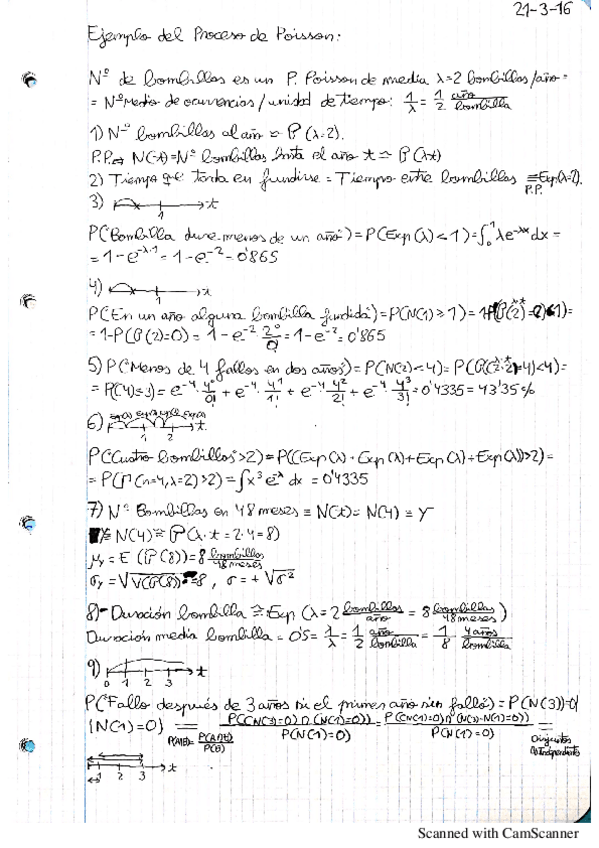 21-3-16
Ejemplo del Proceso de Poisson:
Nº de bombillas es un P. Poisson de media λ=2 bombillas/año =
= Nº Medio de ocurrencias / unidad de tiempo: 1/λ = 1/2 año/bombilla
1) Nº bombillas al año ≃ P(λ=2).
P.P. ⇔ N(t)=Nº bombillas hasta el año t ≃ P(λt)
2) Tiempo que tarda en fundirse = Tiempo entre bombillas ≡ Exp(λ=2).
P.P.
3) 1 → t
P("Bombilla dure menos de un año") = P(Exp(λ) < 1) = ∫₀¹ λe^-λx dx =
= 1 - e^-λ·1 = 1 - e^-2 = 0'865
4) 1 → t
P("En un año alguna bombilla fundida") = P(N(1) ≥ 1) =
= 1 - P(P(2)=0) = 1 - e^-2 2⁰/0! = 1 - e^-2 = 0'865
5) P("Menos de 4 fallos en dos años") = P(N(2) < 4) = P(P(2·2)=4) < 4) =
= P(P(4) ≤ 3) = e^-4 · 4⁰/0! + e^-4 · 4¹/1! + e^-4 · 4²/2! + e^-4 · 4³/3! = 0'4335 = 43'35%
6) 1 2 → t
P("Cuatro bombillas > 2") = P((Exp(λ) + Exp(λ) + Exp(λ) + Exp(λ)) > 2) =
= P(Γ(n=4, λ=2) > 2) = ∫ x³ e^-λ dx = 0'4335
7) Nº Bombillas en 48 meses ≡ N(t) = N(4) ≡ Y
Y ≡ N(4) ≃ P(λ·t = 2·4 = 8)
μy = E(P(8)) = 8 bombillas/48 meses
σy = √V(P(8)) = 8, σ = +√σ²
8) Duración bombilla ≃ Exp (λ = 2 bombillas/año = 8 bombillas/48 meses)
Duración media bombilla = 0'5 = 1/λ = 1/2 año/bombilla = 1/8 4 años/bombilla
9) 0 1 2 3 → t
P("Fallo después de 3 años si el primer año sin fallo") = P(N(3)=0/
{N(1)=0} = P((N(3)=0) ∩ (N(1)=0))/P(N(1)=0) = P((N(1)=0) ∩ (N(3)-N(1)=0))/P(N(1)=0) =
P(A|B)= P(A∩B)/P(B)
Disjuntos
Independientes
1 2 3 → t
Scanned with CamScanner